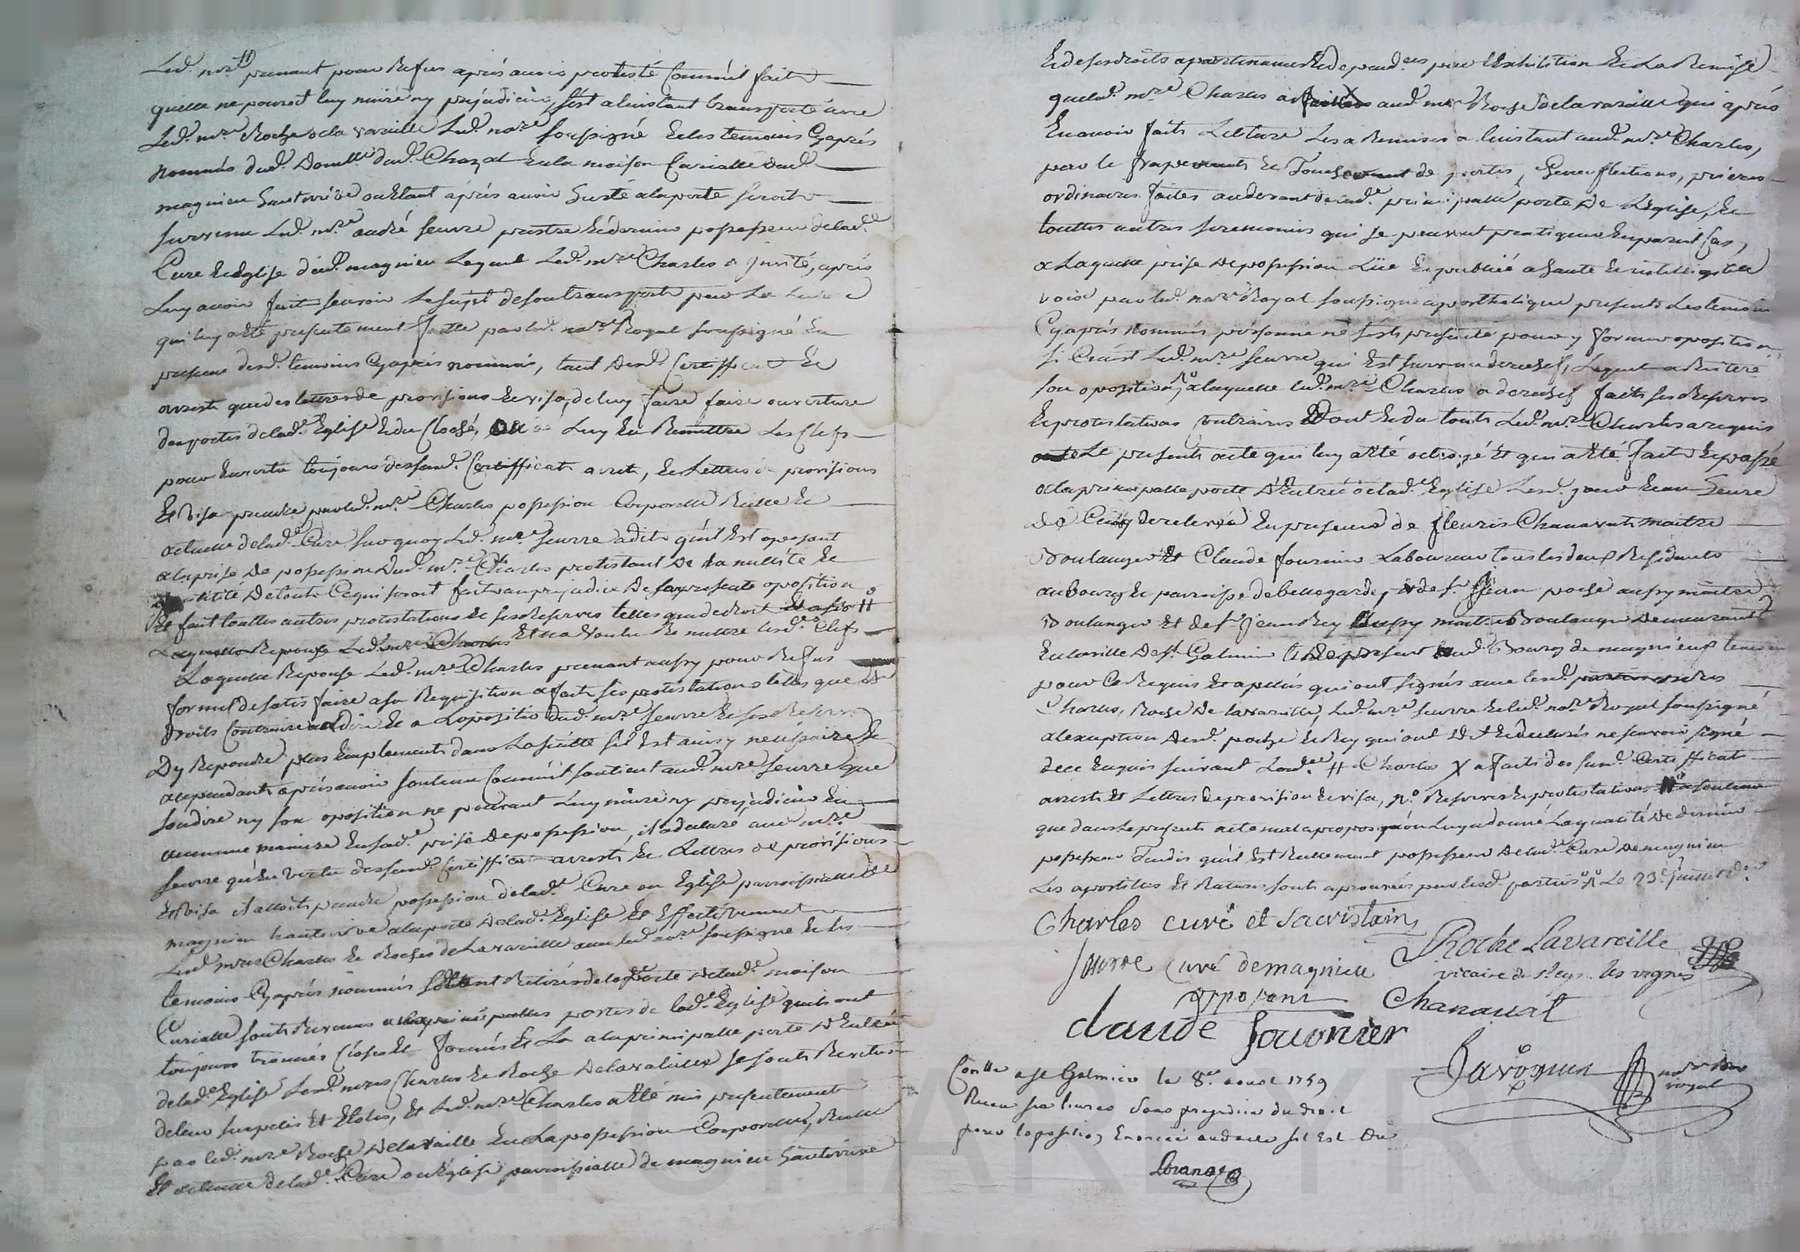 Led. mre prenant pour Refus aprés avoir protesté Comm'il fait
quelle ne pouroit luy nuire ny prejudicier, s'est a l'instant transporté avec
Led. mre Roche de la vareille Led. nore soussigné Et les temoins Cy aprés
nommés dud. Domille dud. Chazal en la maison Curialle dud.
magnieu hauterive ou Etant aprés avoir hurté a la porte seroit
survenu Led. mre andré feurre prestre Et dernier possesseur de lad.
Cure Et Eglise dud. magnieu Lequel Led. mre Charles a Jnvité, aprés
Luy avoir fait scavoir Le sujet de son transport par La Lecture
qui luy a Eté presentement faitte par led. nore Royal soussigné En
presence desd. temoins Cy aprés nommés, tant dud. Certifficat Et
arrest que des lettres de provisions Et visa, de luy faire faire ouverture
des portes de lad. Eglise Et du Cloché, ou de Luy En Remettre Les Clefs
pour En vertu toujours desd. Certifficat arrest, Et Lettres de provisions
Et Visa prendre par led. mre Charles possession Corporelle Reelle Et
actuelle de lad. Cure sur quoy Led. mre feurre a dit qu'il Est oposant
a la prise de possession dud. mre Charles protestant De la nullité Et
De toute Ce qui seroit fait au prejudice De sa presente oposition
Et fait touttes autres protestations Et ses Reserves telles que de droit
Laquelle Reponse Led. mre Charles Et n'a voulu Remettre Lesd. Clefs
Laquelle Reponse Led. mre Charles prenant aussy pour Refus
formel de satisfaire a sa Requisition a fait ses protestations telles que de
droits Contraire Et a Lopositio dud. mre feurre Et ses Reserves
Dy Repondre plus Emplement dans La suitte s'il Est ainsy necessaire Et
cependant aprés avoir soutenu Comm'il soutient aud. mre feurre que
son dire ny son oposition ne peuvent Luy nuire ny prejudicier En
aucune maniere En sad. prise De possession, il a declaré aud. mre
feurre qu'En vertu desd. Certifficat arrest Et Lettres de provisions
Et Visa il alloit prendre possession de lad. Cure ou Eglise parroissialle de
magnieu hauterive a la porte de lad. Eglise Et Effectivement
Lesd. mres Charles Et Roche de La vareille avec led. nore soussigné Et les
temoins Cy aprés nommés s'Etant Retirés de la porte de lad. maison
Curialle sont Revenus aux principalles portes de lad. Eglise qu'ils ont
toujours trouvés Closes Et fermés Et La a la principalle porte d'Entrée
de lad. Eglise Lesd. mres Charles Et Roche De la vareille se sont Revetus
de leur surpelis Et Etoles, Et Led. mre Charles a Eté mis presentement
par led. mre Roche De la vareille En La possession Corporelle, Reelle
Et actuelle de lad. Cure ou Eglise parroissialle de magnieu hauterive
Et de ses droits apartenances Et dependces par l'Exhibition Et La Remise
que led. mre Charles a faitte aud. mre Roche de la vareille qui aprés
En avoir fait Lecture Les a Remises a l'instant aud. mre Charles,
par le frapement Et Touchement de portes, Genuflections, prieres
ordinaires faites audevant de lad. principalle porte De L'Eglise, Et
touttes autres ceremonies qui se peuvent pratiquer En pareil Cas,
a Laquelle prise De possession Lüe Et publiée a haute Et intelligible
voix par led. nore Royal soussigné apostholique presents Les temoins
Cy aprés nommés personne ne s'est presenté pour y former oposition
si Ce n'est Led. mre feurre qui Est survenu derechef, Lequel a Reiteré
son oposition, a laquelle led. mre Charles a derechef fait ses Reserves
Et protestations Contraires Dont Et du tout Led. mre Charles a requis
Le present acte qui luy a Eté octroyé Et qui a Eté fait Et passé
a la principalle porte D'Entrée de lad. Eglise Lesd. jour Et an heure
de Cinq de relevée En presence de fleuris Chanavat maitre
Boulanger Et Claude fournier Laboureur tous les deux Residents
au bourg Et parroisse de bellegarde, de sr. Jean poche aussy maitre
Boulanger Et de sr Jean Rey aussy maitre Boulanger Demeurant
En la ville De st. Galmier Et De present aud. Bourg de magnieu temoins
pour Ce Requis Et apellés qui ont signés avec lesd.
Charles, Roche De la vareille, Led. mre feurre Et led. nore Royal soussigné
a l'exception desd. poche Et Rey qui ont dit Et declarés ne scavoir signé
de ce Enquis suivant Lordce # Charles X a faite des susd. Certifficat
arrest Et Lettres de provision Et visa, Reserves Et protestations
que dans Le present acte mal a propos qu'on Luy a donné La qualité de dernier
possesseur Tandis qu'il Est Reellement possesseur de lad. Cure De magnieu
Les apostilles Et Rature sont aprouvées par lesd. parties Le 23e Juillet
Charles curé et Sacristain
feurre curé de magnieu
opposant
Roche Lavareille
vicaire de st cyr les vignes
Chanavat
Claude fournier
Conllé a st Galmier le 8e aoust 1759
Receu six livres sans prejudice du droit
pour loposition Enoncée audacte sil Est Du
nore
royal